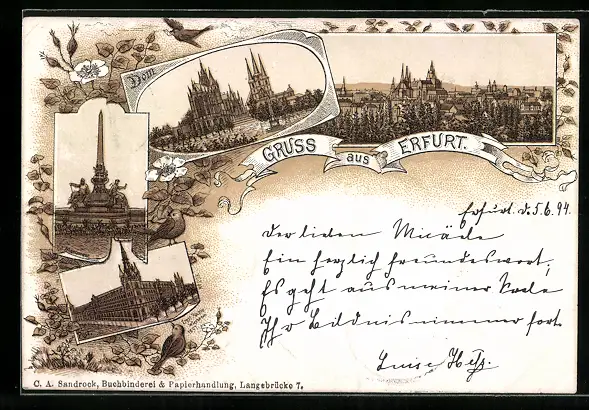 Dom
GRUSS aus ERFURT.
Erfurt d. 5.6.94.
Der lieben
Ein herzlich Freundeswort,
Es geht aus meiner Seele
Ihr Bildnis nimmer fort.
Luise
C. A. Sandrock, Buchbinderei & Papierhandlung, Langebrücke 7.